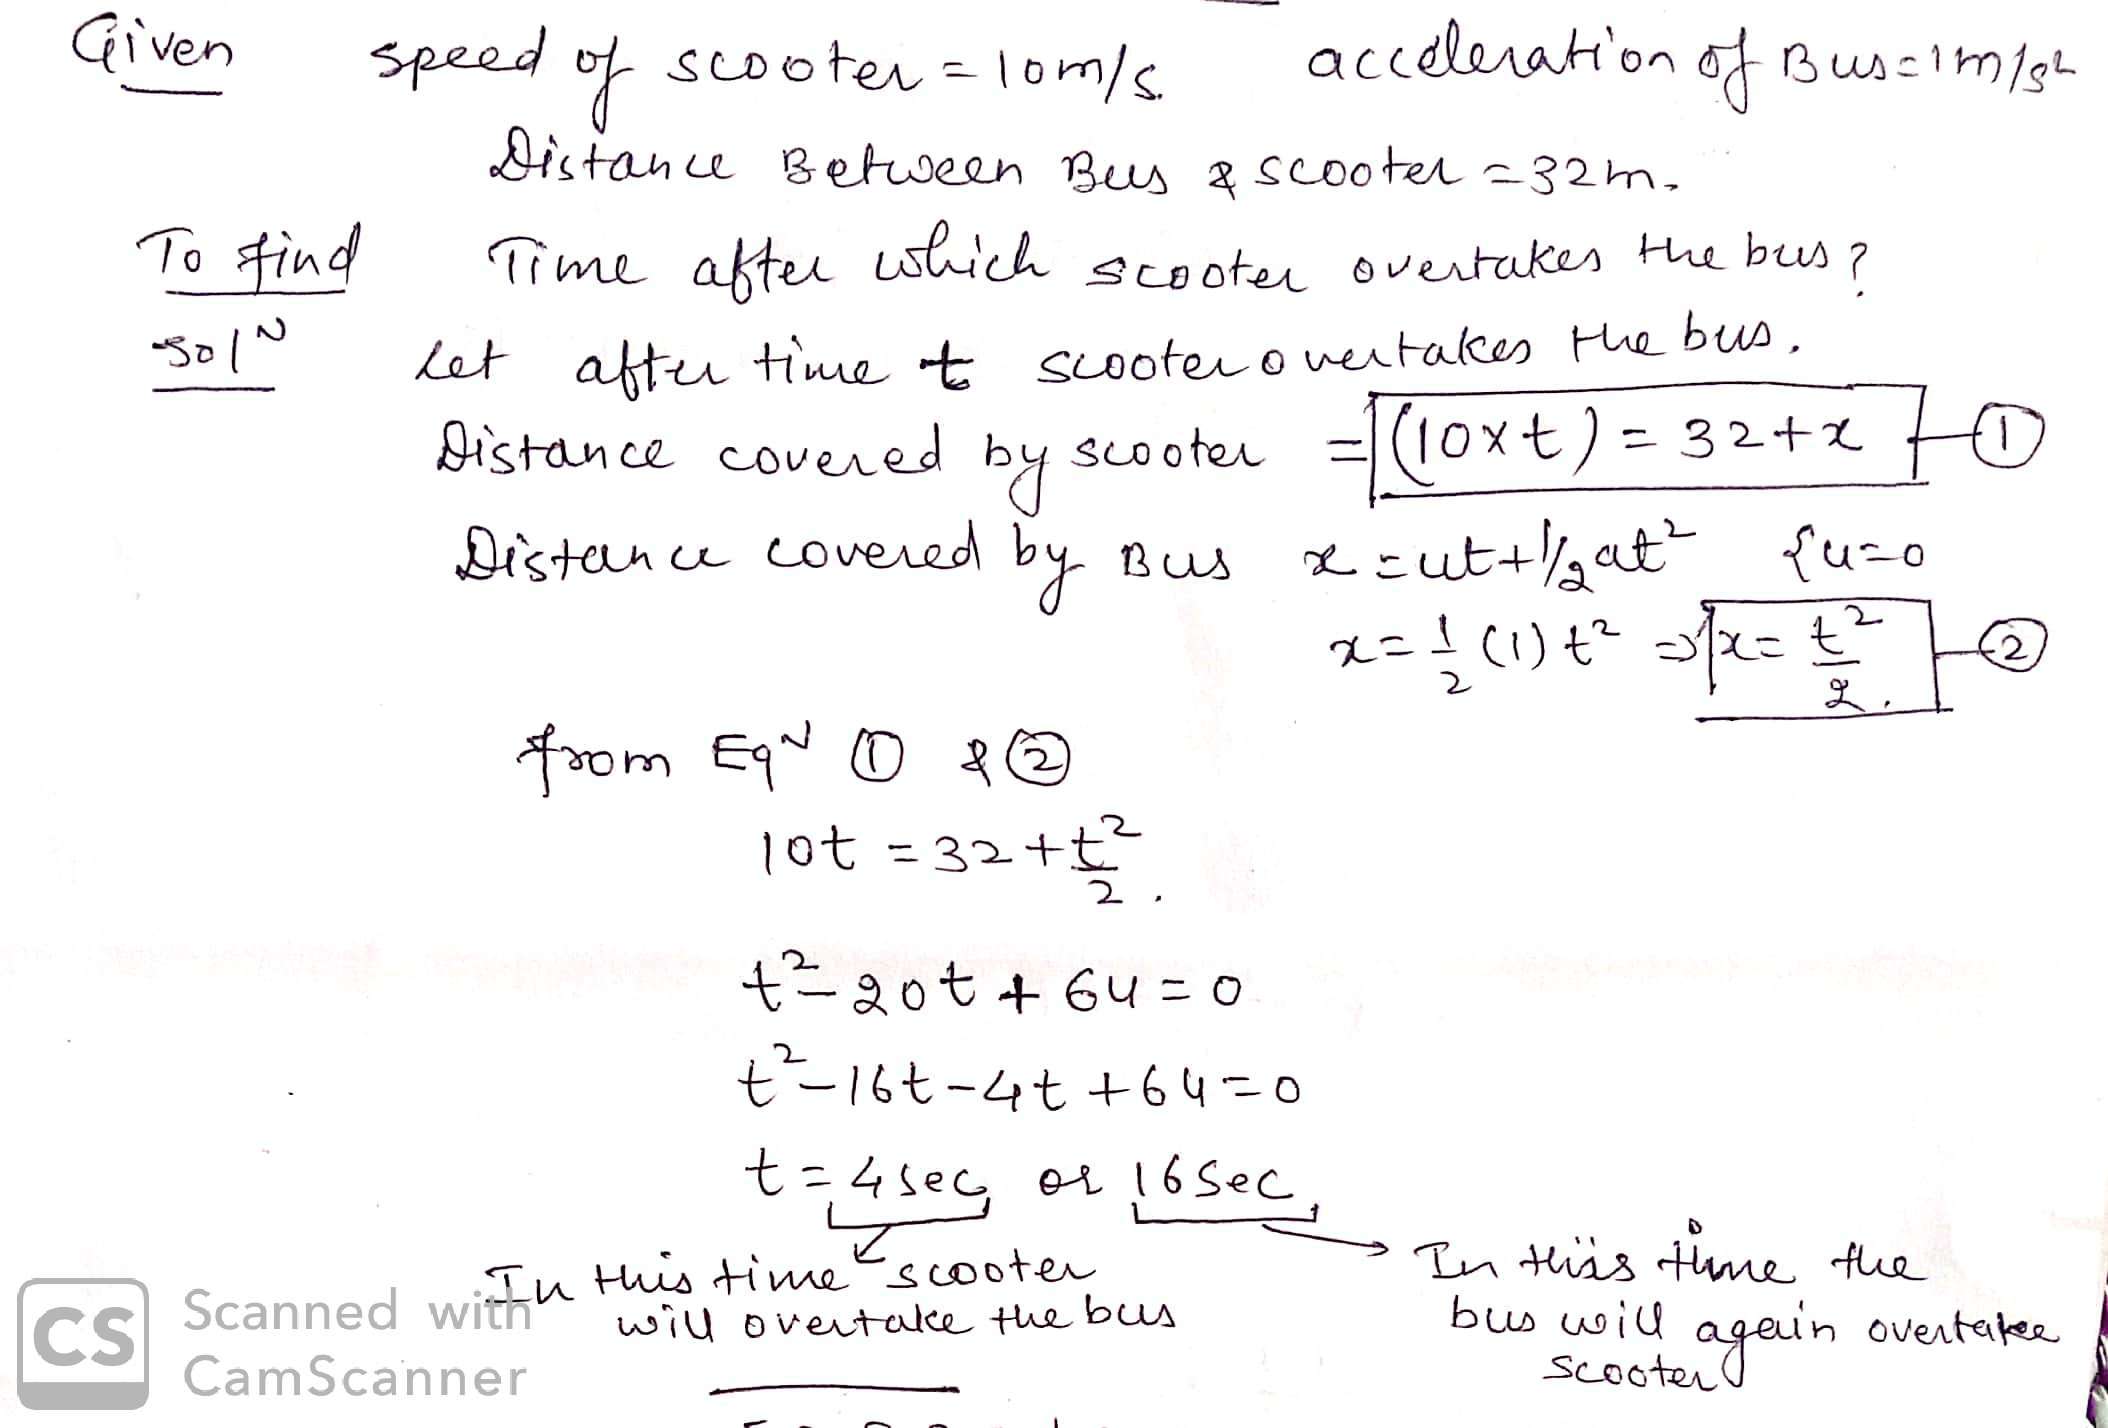 Given speed of scooter = 10m/s. acceleration of Bus = 1m/s²
Distance Between Bus & scooter = 32m.
To find Time after which scooter overtakes the bus?
Solᴺ Let after time t scooter overtakes the bus.
Distance covered by scooter = (10×t) = 32+x ①
Distance covered by Bus x = ut + 1/2 at² {u=0
x = 1/2 (1) t² ⇒ x = t²/2. ②
from Eqᴺ ① & ②
10t = 32 + t²/2.
t² - 20t + 64 = 0
t² - 16t - 4t + 64 = 0
t = 4 sec or 16 Sec
In this time scooter
will overtake the bus
In this time the
bus will again overtake
scooter
CS Scanned with
CamScanner